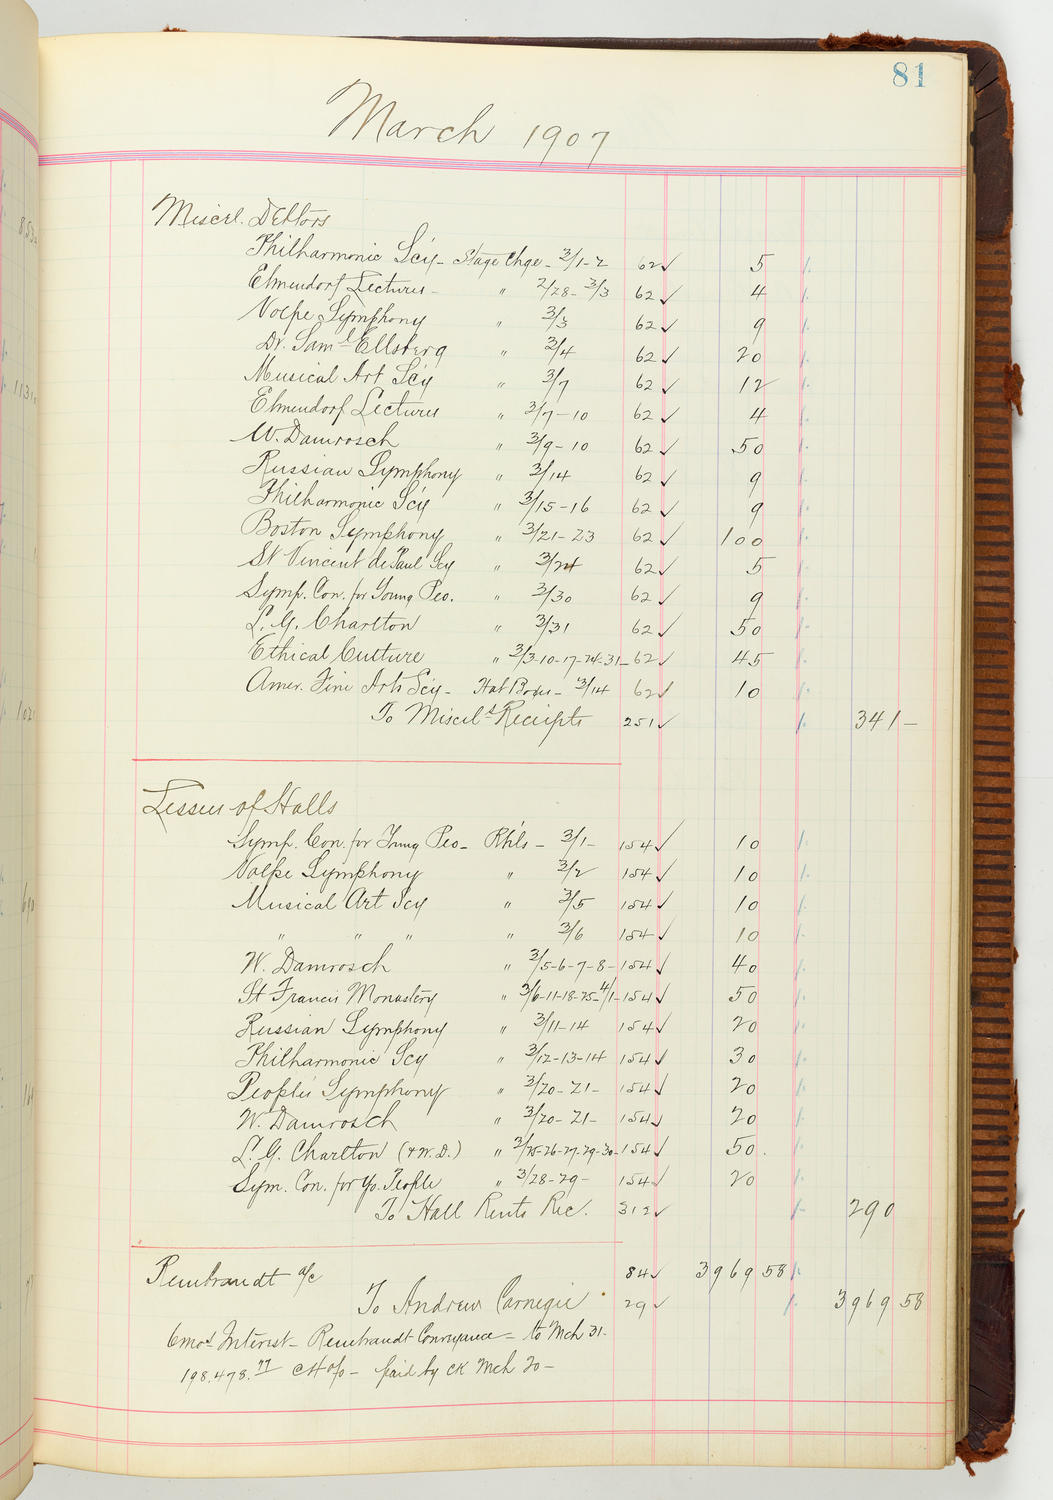 81
March 1907
Miscel. Debtors
Philharmonic Sc'y - Stage Chge - 3/1-2 62 ✓ 5
Elmendorf Lectures - " 2/28 - 3/3 62 ✓ 4
Volpe Symphony " 3/3 62 ✓ 9
Dr. Saml Ellsberg " 3/4 62 ✓ 20
Musical Art Sc'y " 3/7 62 ✓ 12
Elmendorf Lectures " 3/7-10 62 ✓ 4
W. Damrosch " 3/9-10 62 ✓ 50
Russian Symphony " 3/14 62 ✓ 9
Philharmonic Sc'y " 3/15-16 62 ✓ 9
Boston Symphony " 3/21-23 62 ✓ 100
St Vincent de Paul Scy " 3/24 62 ✓ 5
Symp. Con. for Young Peo. " 3/30 62 ✓ 9
L. G. Charlton " 3/31 62 ✓ 50
Ethical Culture " 3/3-10-17-24-31- 62 ✓ 45
Amer. Fine Arts Sc'y - Hat Boxes - 3/14 62 ✓ 10
To Miscels Receipts 251 ✓ 341 -
Lessees of Halls
Symp. Con. for Young Peo - Rh'ls - 3/1- 154 ✓ 10
Volpe Symphony " 3/2 154 ✓ 10
Musical Art Scy " 3/5 154 ✓ 10
" " " " 3/6 154 ✓ 10
W. Damrosch " 3/5-6-7-8- 154 ✓ 40
St Francis Monastery " 3/6-11-18-25-4/1- 154 ✓ 50
Russian Symphony " 3/11-14 154 ✓ 20
Philharmonic Scy " 3/12-13-14 154 ✓ 30
People's Symphony " 3/20-21- 154 ✓ 20
W. Damrosch " 3/20-21- 154 ✓ 20
L. G. Charlton (+ W. D.) " 3/25-26-27-29-30- 154 ✓ 50.
Sym. Con. for Yo. People " 3/28-29- 154 ✓ 20
To Hall Rents Rec. 312 ✓ 290
Rembrandt a/c 84 ✓ 3969 58
To Andrew Carnegie 29 ✓ 3969 58
6 mos Interest - Rembrandt Conveyance - to Mch 31-
198.478.77 @ 4% - paid by CK Mch 20 -